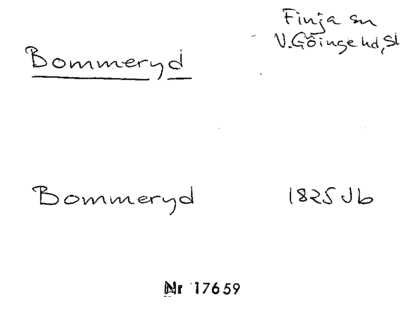 Finja sn
V.Göinge hd, Sk
Bommeryd
Bommeryd 1825 Jb
Nr 17659